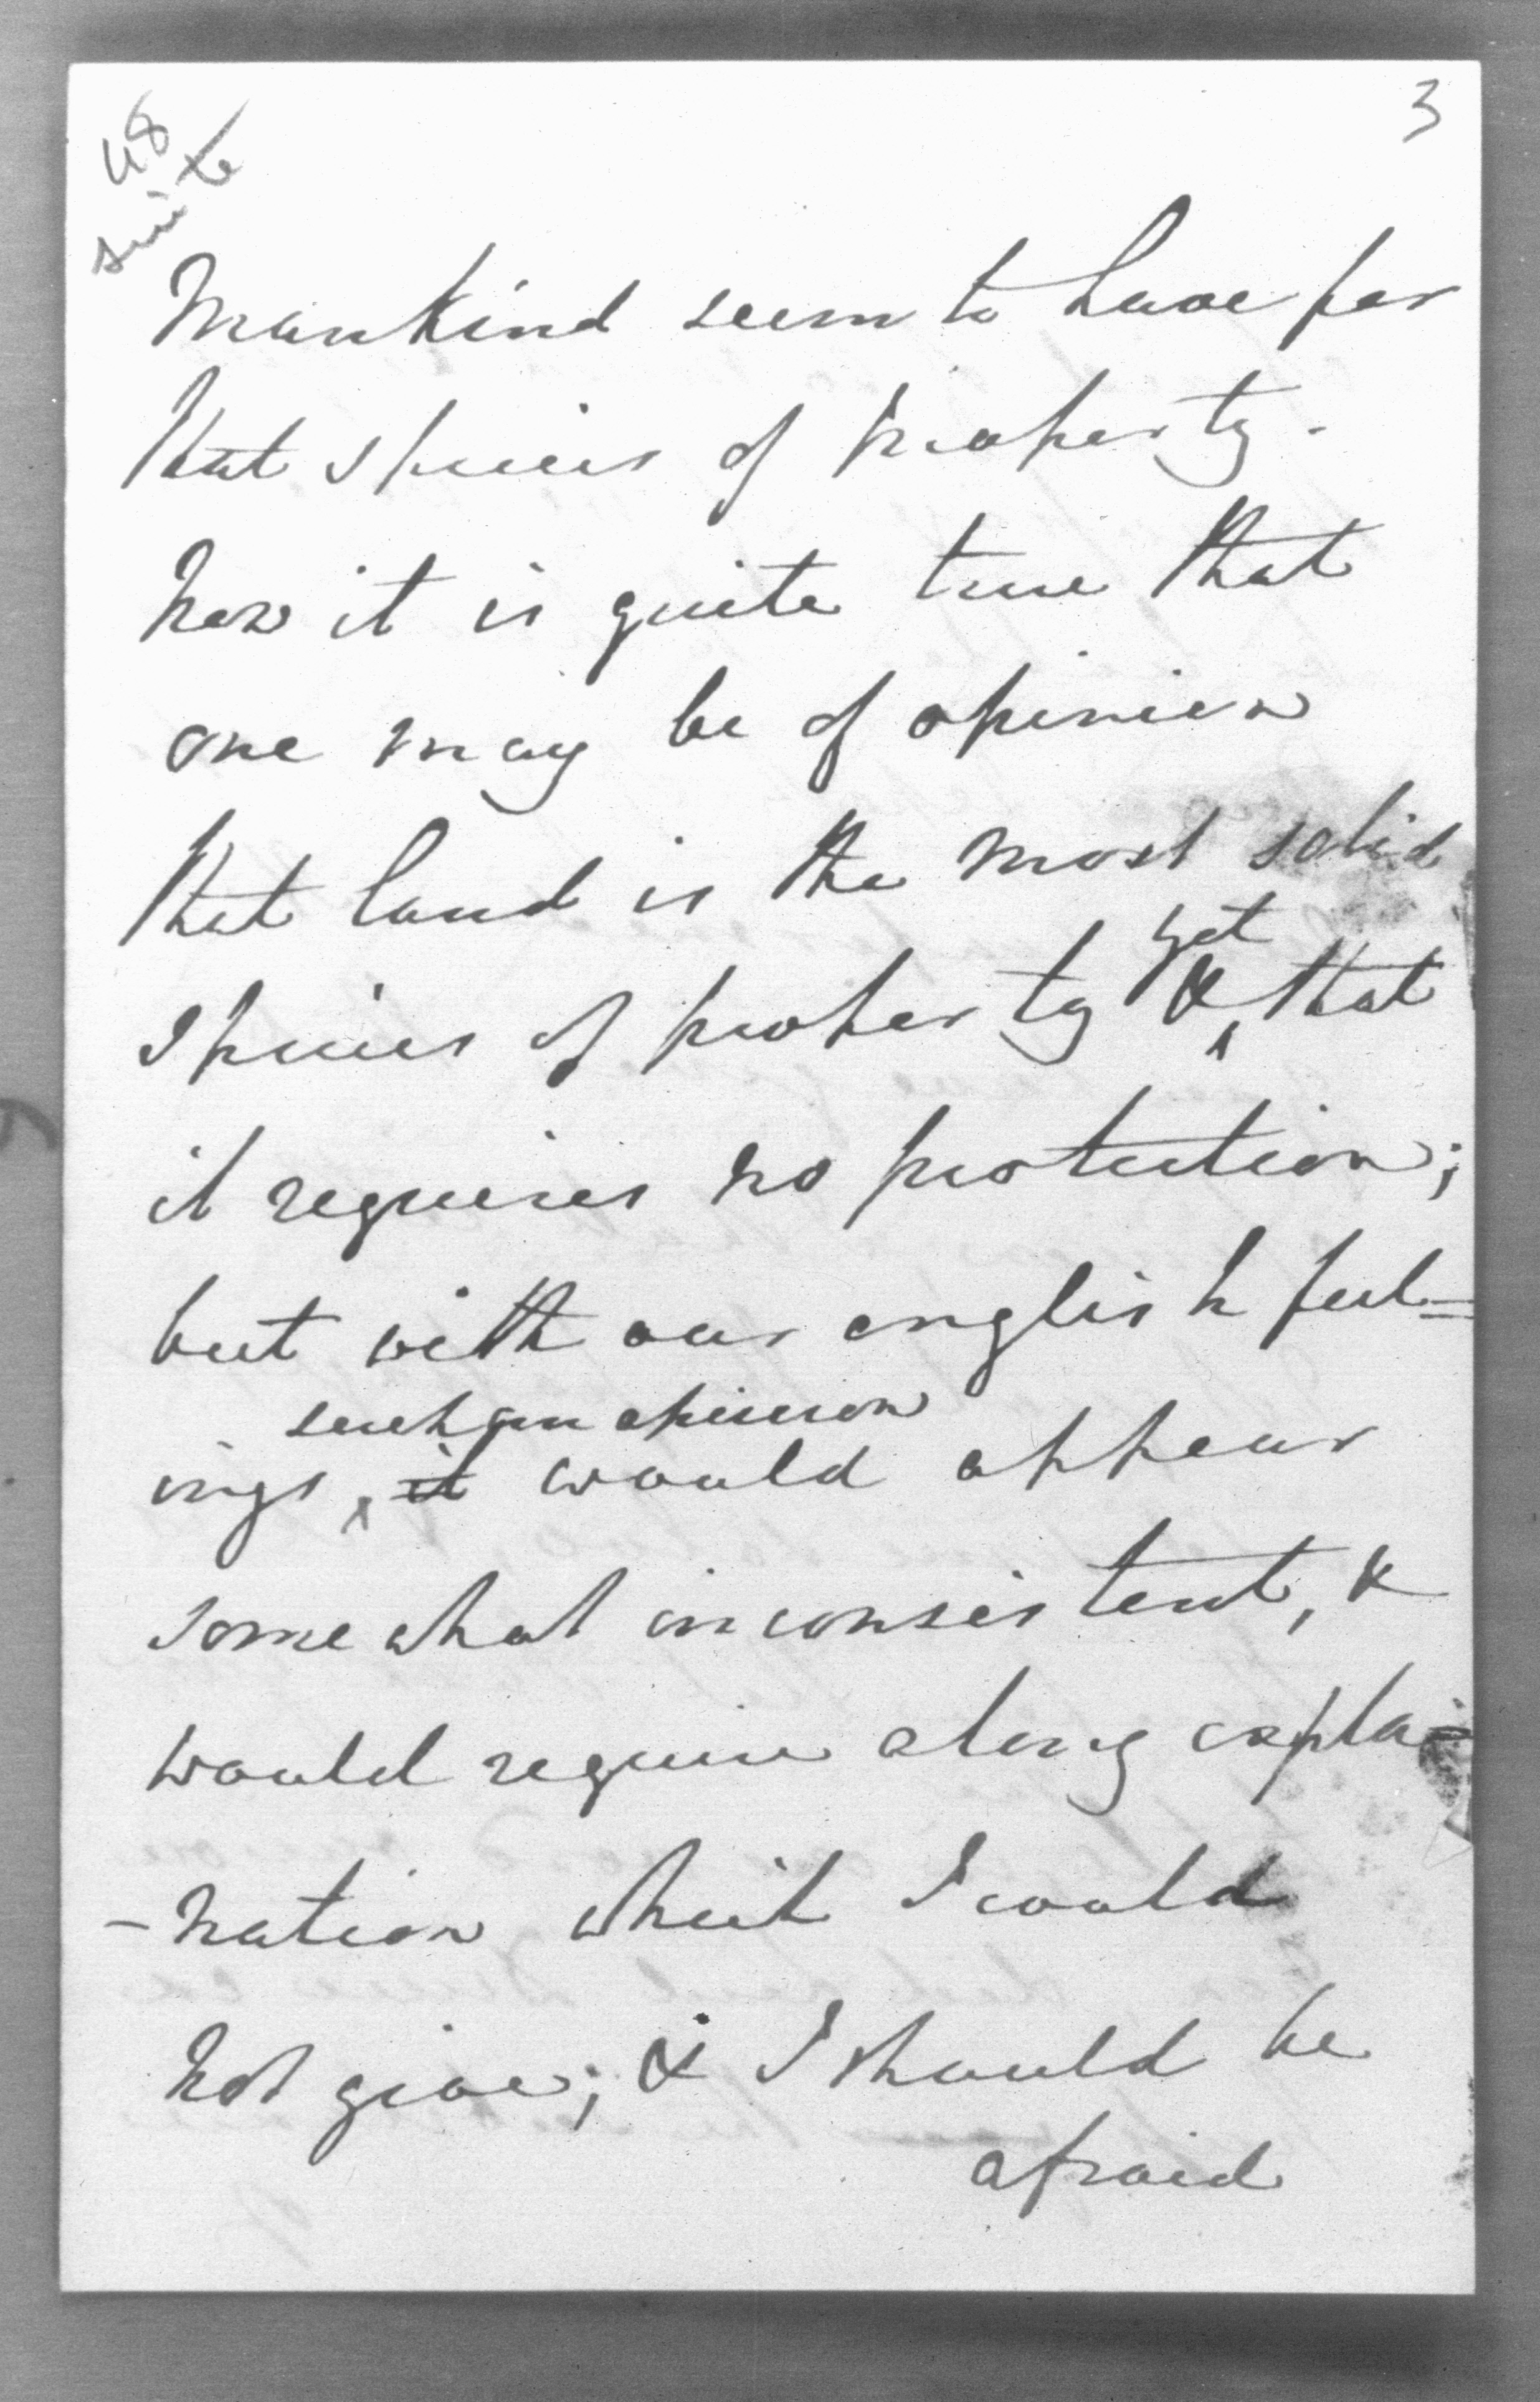 48
suite
3
Mankind seem to have for
that species of property.
Now it is quite true that
one may be of opinion
that land is the most solid
yet
species of property & that
it requires no protection;
but with our english feel=
such an opinion
ings, it would appear
somewhat inconsistent, &
would require a long expla-
-nation which I could
not give; & I should be
afraid